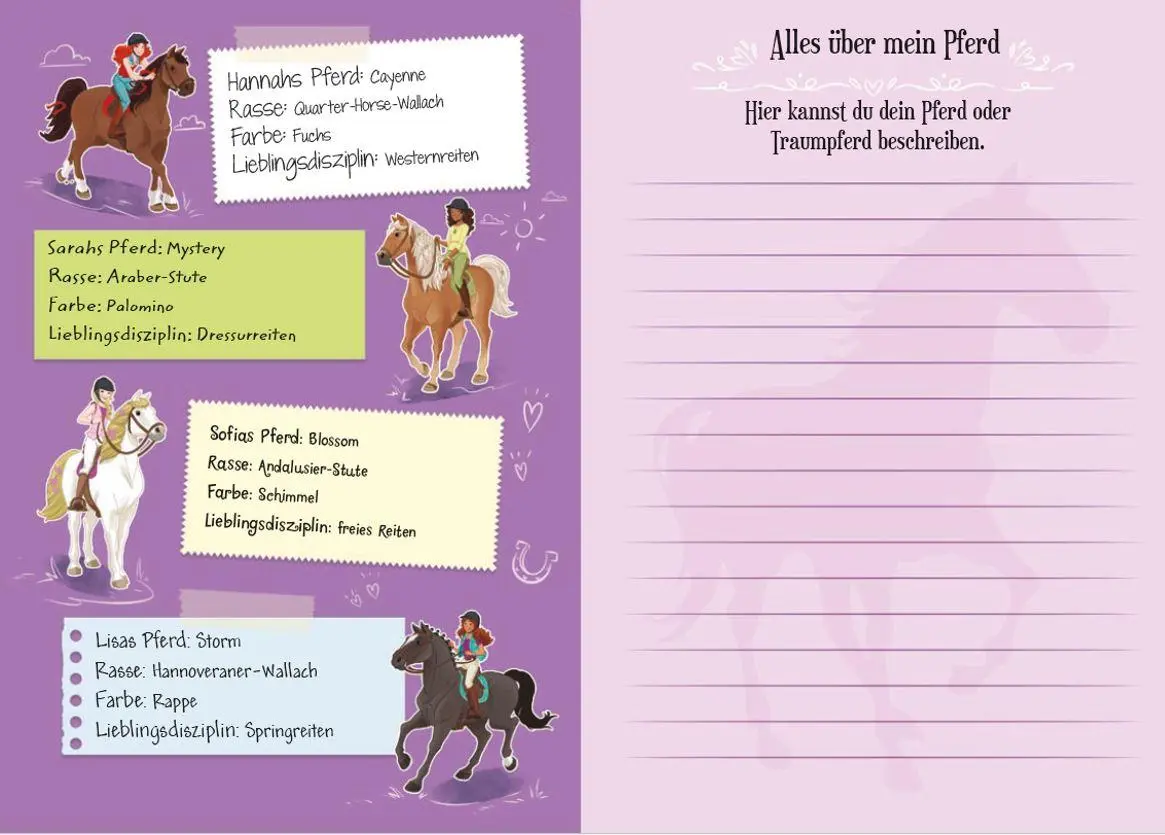 Hannahs Pferd: Cayenne
Rasse: Quarter-Horse-Wallach
Farbe: Fuchs
Lieblingsdisziplin: Westernreiten
Sarahs Pferd: Mystery
Rasse: Araber-Stute
Farbe: Palomino
Lieblingsdisziplin: Dressurreiten
Sofias Pferd: Blossom
Rasse: Andalusier-Stute
Farbe: Schimmel
Lieblingsdisziplin: freies Reiten
Lisas Pferd: Storm
Rasse: Hannoveraner-Wallach
Farbe: Rappe
Lieblingsdisziplin: Springreiten
Alles über mein Pferd
Hier kannst du dein Pferd oder
Traumpferd beschreiben.